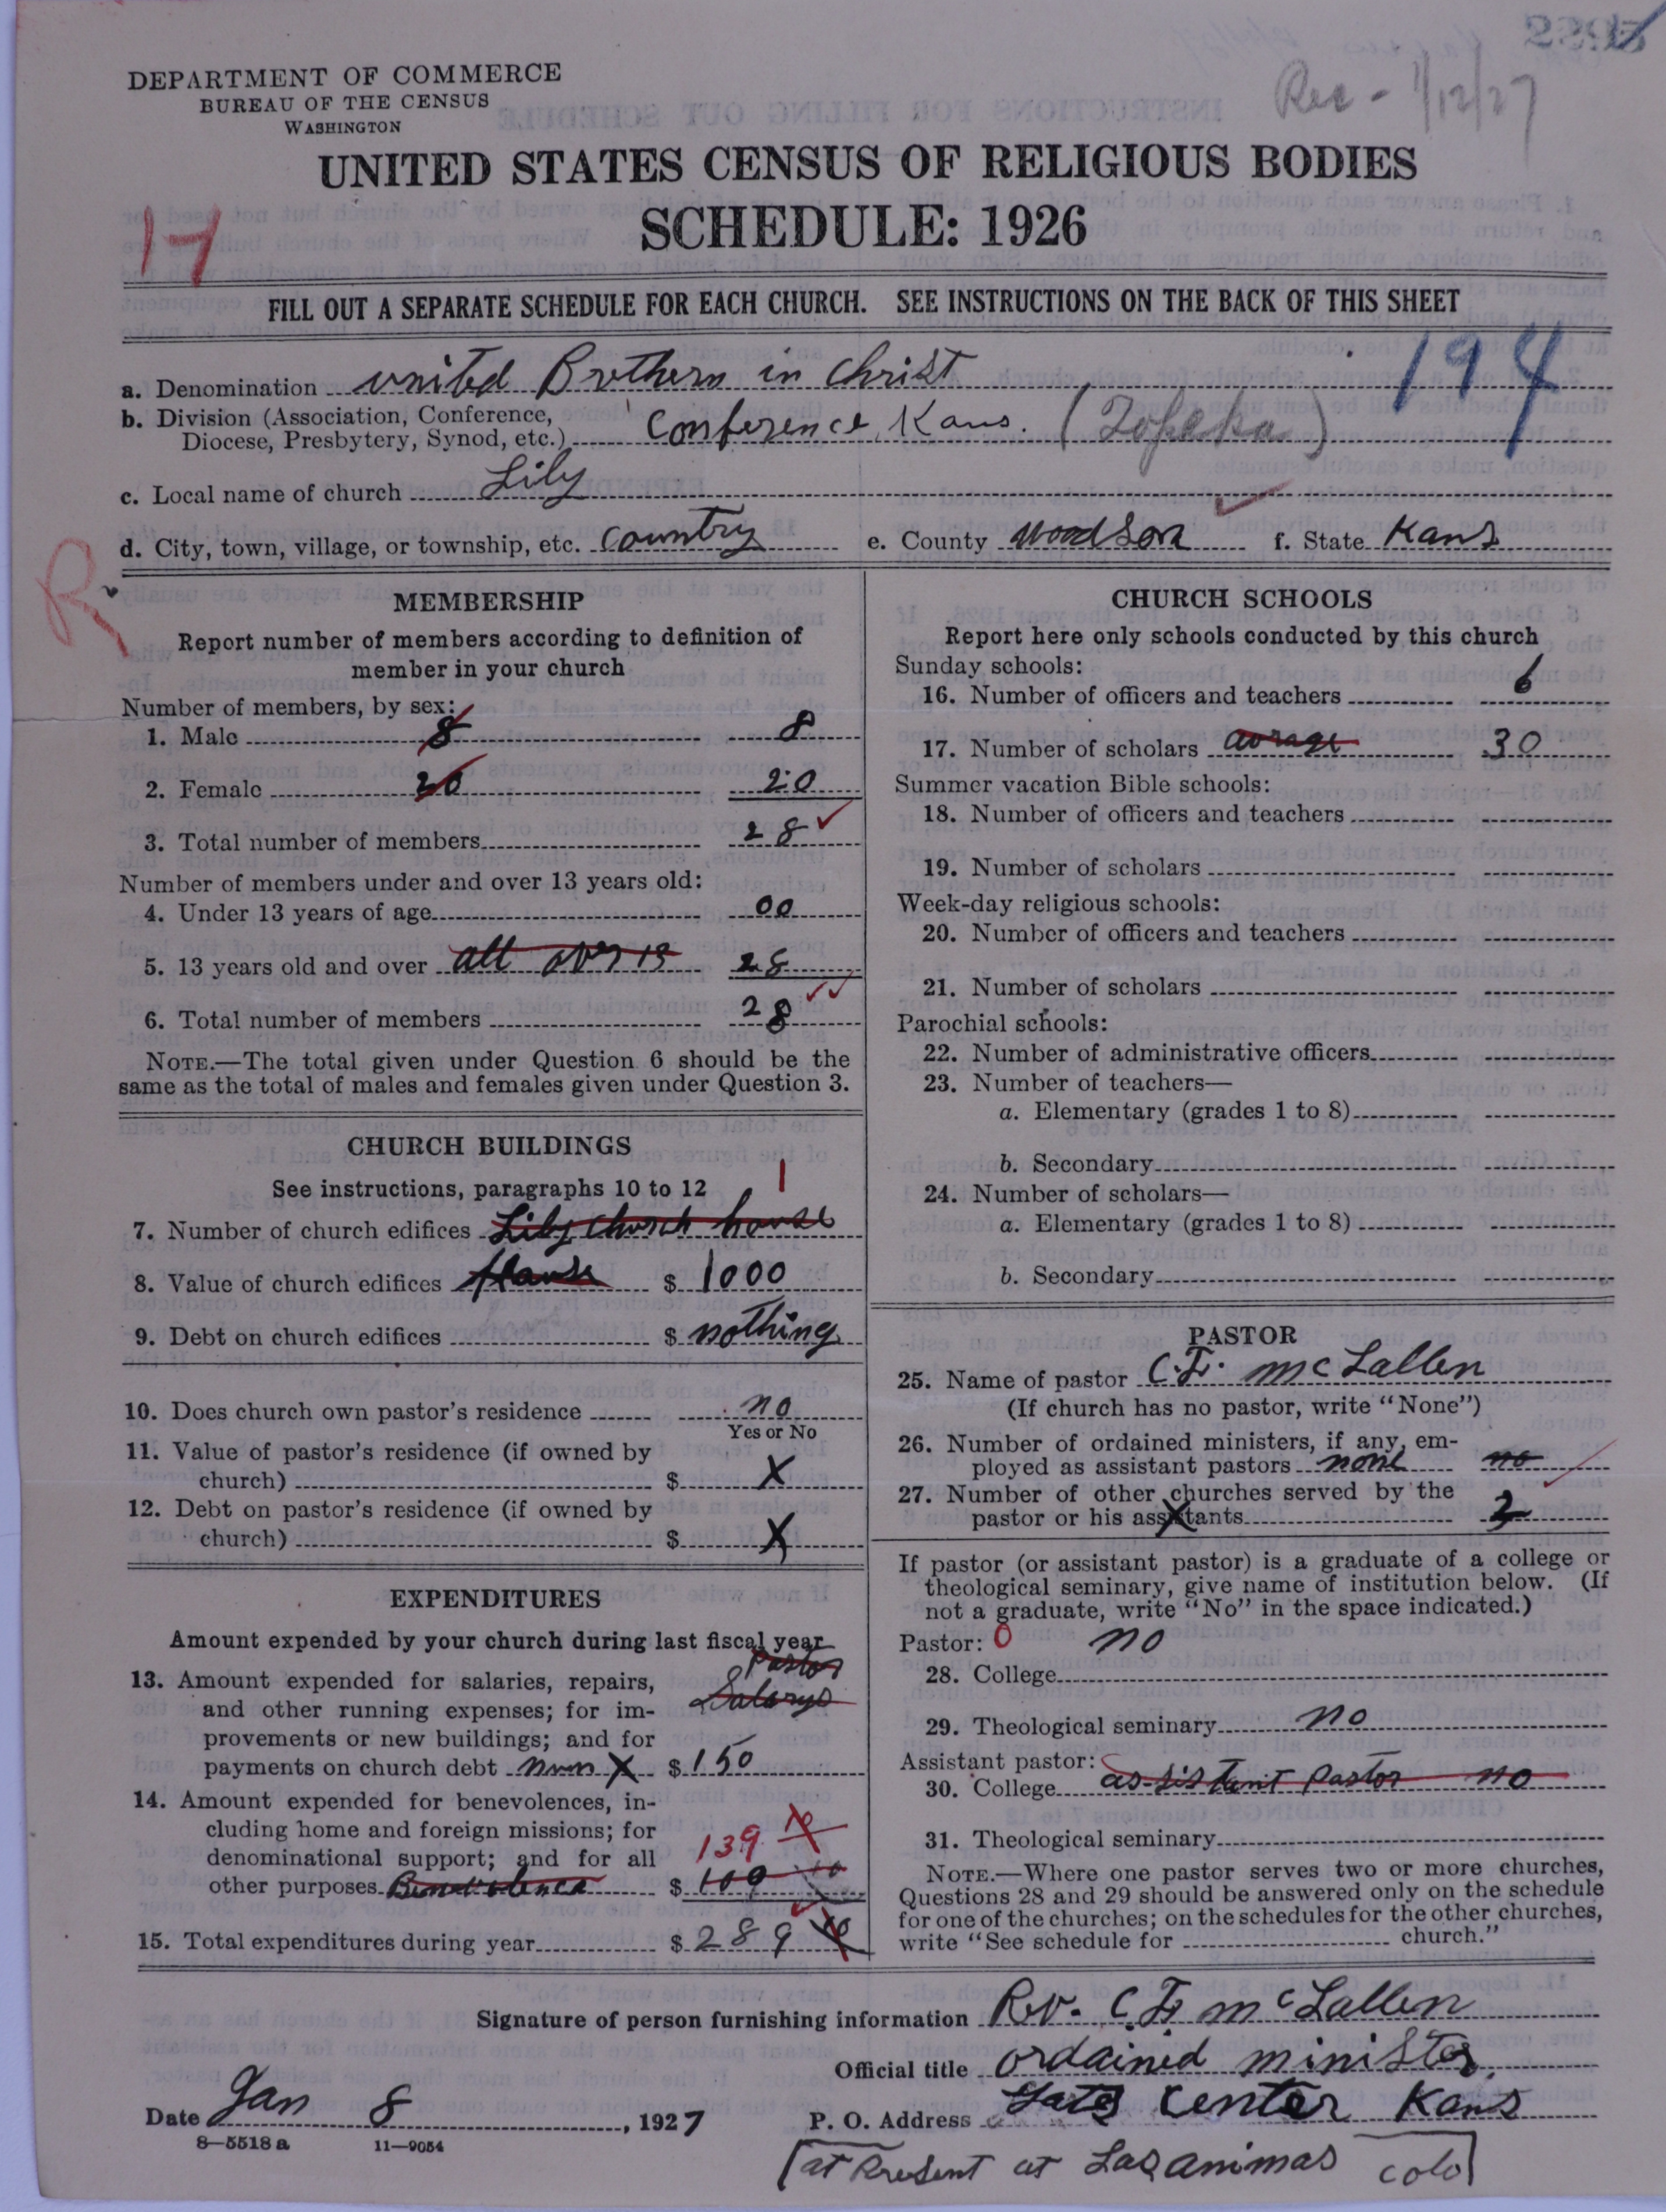 Rec - 1/12/27
DEPARTMENT OF COMMERCE
BUREAU OF THE CENSUS
WASHINGTON
UNITED STATES CENSUS OF RELIGIOUS BODIES
SCHEDULE: 1926
17
FILL OUT A SEPARATE SCHEDULE FOR EACH CHURCH. SEE INSTRUCTIONS ON THE BACK OF THIS SHEET
194
a. Denomination united Brothern in Christ
b. Division (Association, Conference,
Diocese, Presbytery, Synod, etc.) Conference, Kans. (Topeka)
c. Local name of church Lily
d. City, town, village, or township, etc. Country e. County Woodson f. State Kans
R
MEMBERSHIP
Report number of members according to definition of
member in your church
Number of members, by sex:
1. Male 8 8
2. Female 20 20
3. Total number of members 28
Number of members under and over 13 years old:
4. Under 13 years of age 00
5. 13 years old and over all over 13 28
6. Total number of members 28
NOTE.—The total given under Question 6 should be the
same as the total of males and females given under Question 3.
CHURCH BUILDINGS
See instructions, paragraphs 10 to 12 1
7. Number of church edifices Lily church house
8. Value of church edifices House $ 1000
9. Debt on church edifices $ nothing
10. Does church own pastor's residence no
Yes or No
11. Value of pastor's residence (if owned by
church) $ X
12. Debt on pastor's residence (if owned by
church) $ X
EXPENDITURES
Amount expended by your church during last fiscal year
Pastor
13. Amount expended for salaries, repairs, Salarys
and other running expenses; for im-
provements or new buildings; and for
payments on church debt X $ 150
14. Amount expended for benevolences, in-
cluding home and foreign missions; for
denominational support; and for all 139
other purposes Benevolence $ 109
15. Total expenditures during year $ 289
CHURCH SCHOOLS
Report here only schools conducted by this church
Sunday schools:
16. Number of officers and teachers 6
17. Number of scholars avrage 30
Summer vacation Bible schools:
18. Number of officers and teachers
19. Number of scholars
Week-day religious schools:
20. Number of officers and teachers
21. Number of scholars
Parochial schools:
22. Number of administrative officers
23. Number of teachers—
a. Elementary (grades 1 to 8)
b. Secondary
24. Number of scholars—
a. Elementary (grades 1 to 8)
b. Secondary
PASTOR
25. Name of pastor C.F. McLallen
(If church has no pastor, write "None")
26. Number of ordained ministers, if any, em-
ployed as assistant pastors none no
27. Number of other churches served by the
pastor or his assistants 2
If pastor (or assistant pastor) is a graduate of a college or
theological seminary, give name of institution below. (If
not a graduate, write "No" in the space indicated.)
Pastor: 0 no
28. College
29. Theological seminary no
Assistant pastor:
30. College assistant Pastor no
31. Theological seminary
NOTE.—Where one pastor serves two or more churches,
Questions 28 and 29 should be answered only on the schedule
for one of the churches; on the schedules for the other churches,
write "See schedule for church."
Signature of person furnishing information Rev. C F. McLallen
Official title ordained minister
Date Jan 8, 1927 P. O. Address Yates Center Kans
8—5518 a 11—9054
[at Present at Las animas colo]